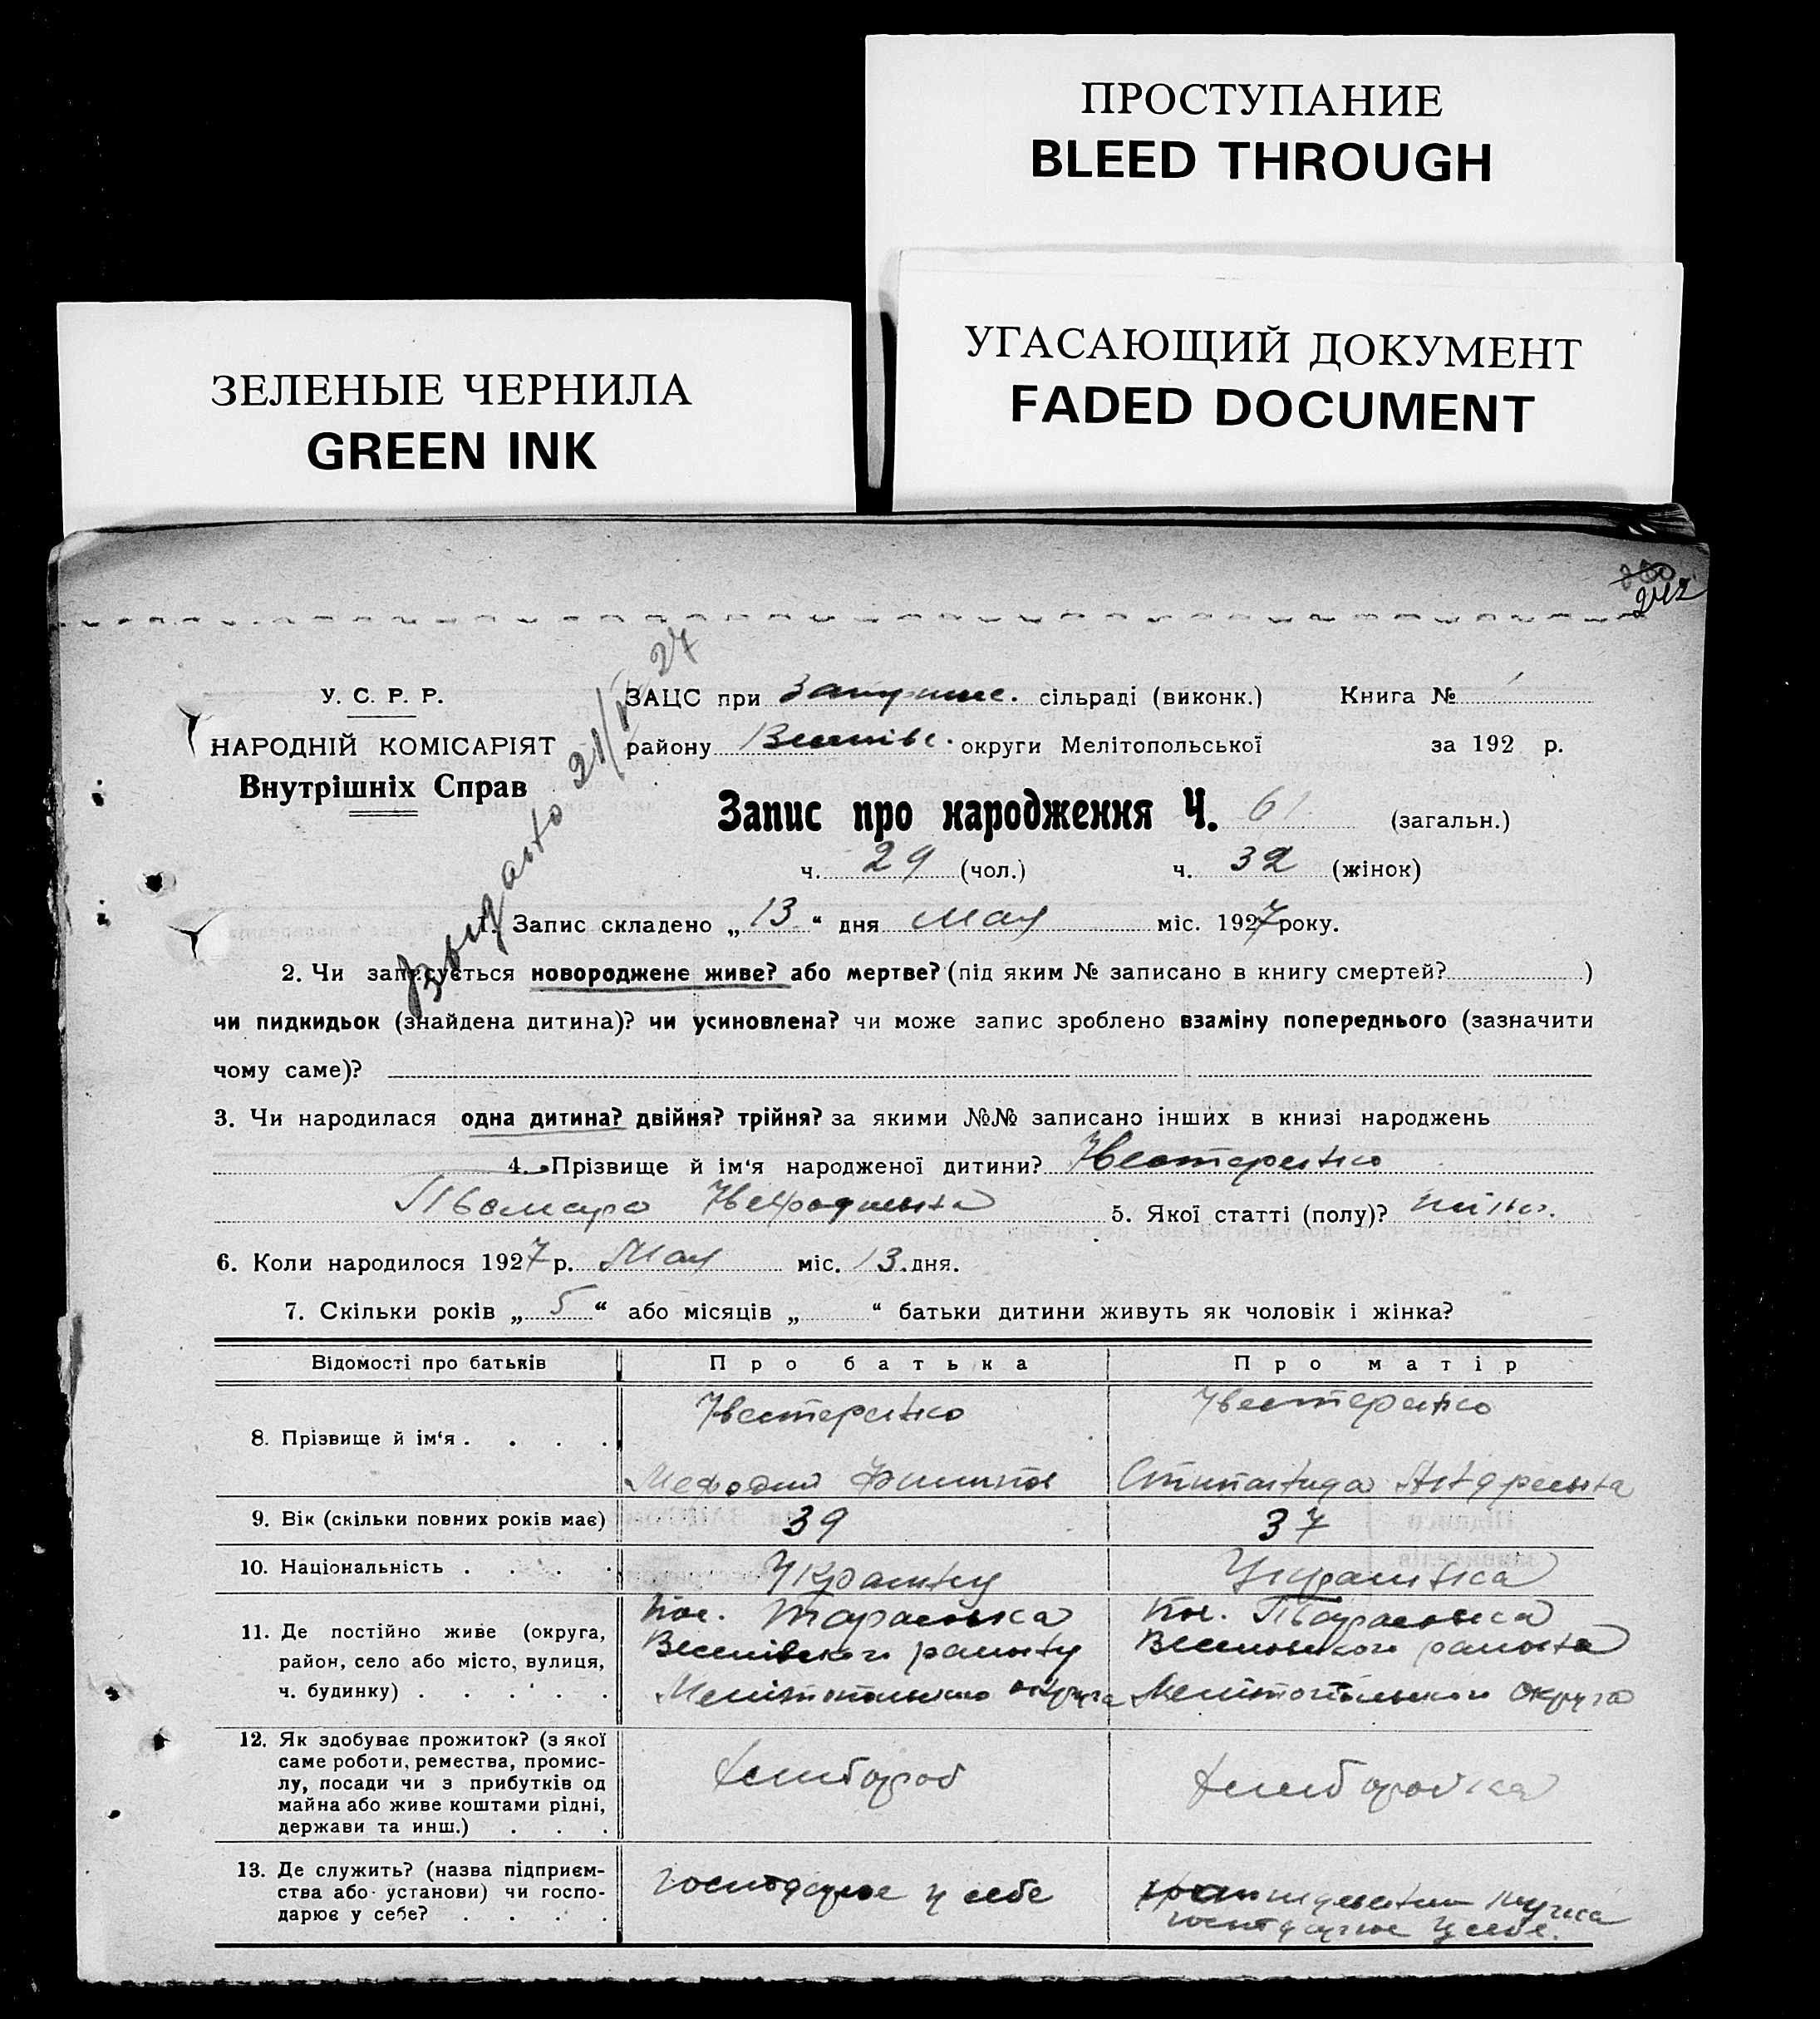 ПРОСТУПАНИЕ
BLEED THROUGH
ЗЕЛЕНЫЕ ЧЕРНИЛА
GREEN INK
УГАСАЮЩИЙ ДОКУМЕНТ
FADED DOCUMENT
242
У. С. Р. Р.
НАРОДНІЙ КОМІСАРІЯТ
Внутрішніх Справ
ЗАЦС при сільраді (виконк.) Книга №
району Веселівс. округи Мелітопольської за 192 р.
Запис про народження Ч. 61 (загальн.)
ч. 29 (чол.) ч. 32 (жінок)
1. Запис складено „13“ дня Мая міс. 1927 року.
2. Чи записується новороджене живе? або мертве? (під яким № записано в книгу смертей? )
чи пидкидьок (знайдена дитина)? чи усиновлена? чи може запис зроблено взаміну попереднього (зазначити
чому саме)?
3. Чи народилася одна дитина? двійня? трійня? за якими №№ записано інших в книзі народжень
4. Прізвище й ім'я народженої дитини? Нестеренко
Тамара 5. Якої статті (полу)?
6. Коли народилося 1927 р. Мая міс. 13 дня.
7. Скільки років „5“ або місяців „ “ батьки дитини живуть як чоловік і жінка?
Відомості про батьків Про батька Про матір
8. Прізвище й ім'я . . . . Нестеренко Нестеренко
Мефодий Филипов Степанида Андреевна
9. Вік (скільки повних років має) 39 37
10. Національність . . . . Украинец Украинка
11. Де постійно живе (округа, район, село або місто, вулиця, ч. будинку) . . . . .
пос. Тарасовка
Веселівского району
Мелітопольского округа
пос. Тарасовка
Веселовского района
Мелітопольского округа
12. Як здобуває прожиток? (з якої саме роботи, ремества, промислу, посади чи з прибутків од майна або живе коштами рідні, держави та инш.) . . .
хлібороб хліборобка
13. Де служить? (назва підприємства або установи) чи господарює у себе? . . . .
господарює у себе
господарює у себе.